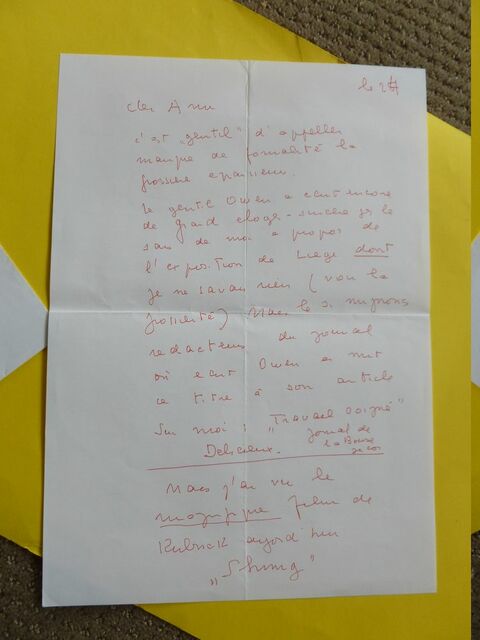 le 24
Cher Ann
c'est "gentil" d'appeller
manque de formalité la
grossiere
Le gentil Owen a ecrit encore
de grand eloge - sincère je le
sais de moi a propos de
l'exposition de Liege dont
je ne savais rien (voir la
) Mais le si mignons
redacteurs du journal
où ecrit Owen a mit
ce titre à son article
sur moi : "Travail soigné"
Delicieux. Jornal de
la Bourse
Mais j'ai vu le
magnifique film de
Kubrick
"Shinig"